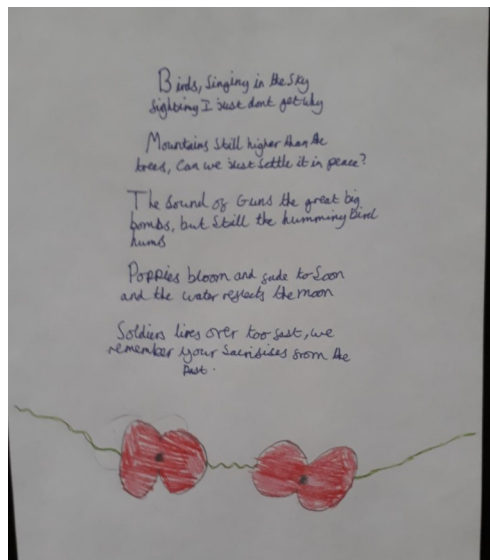 Birds, singing in the sky
fighting I just dont get why
Mountains still higher than the
trees, can we just settle it in peace?
The sound of Guns the great big
bombs, but still the humming Bird
hums
Poppies bloom and fade to soon
and the water reflects the moon
Soldiers lives over too fast, we
remember your sacrifises from the
past.